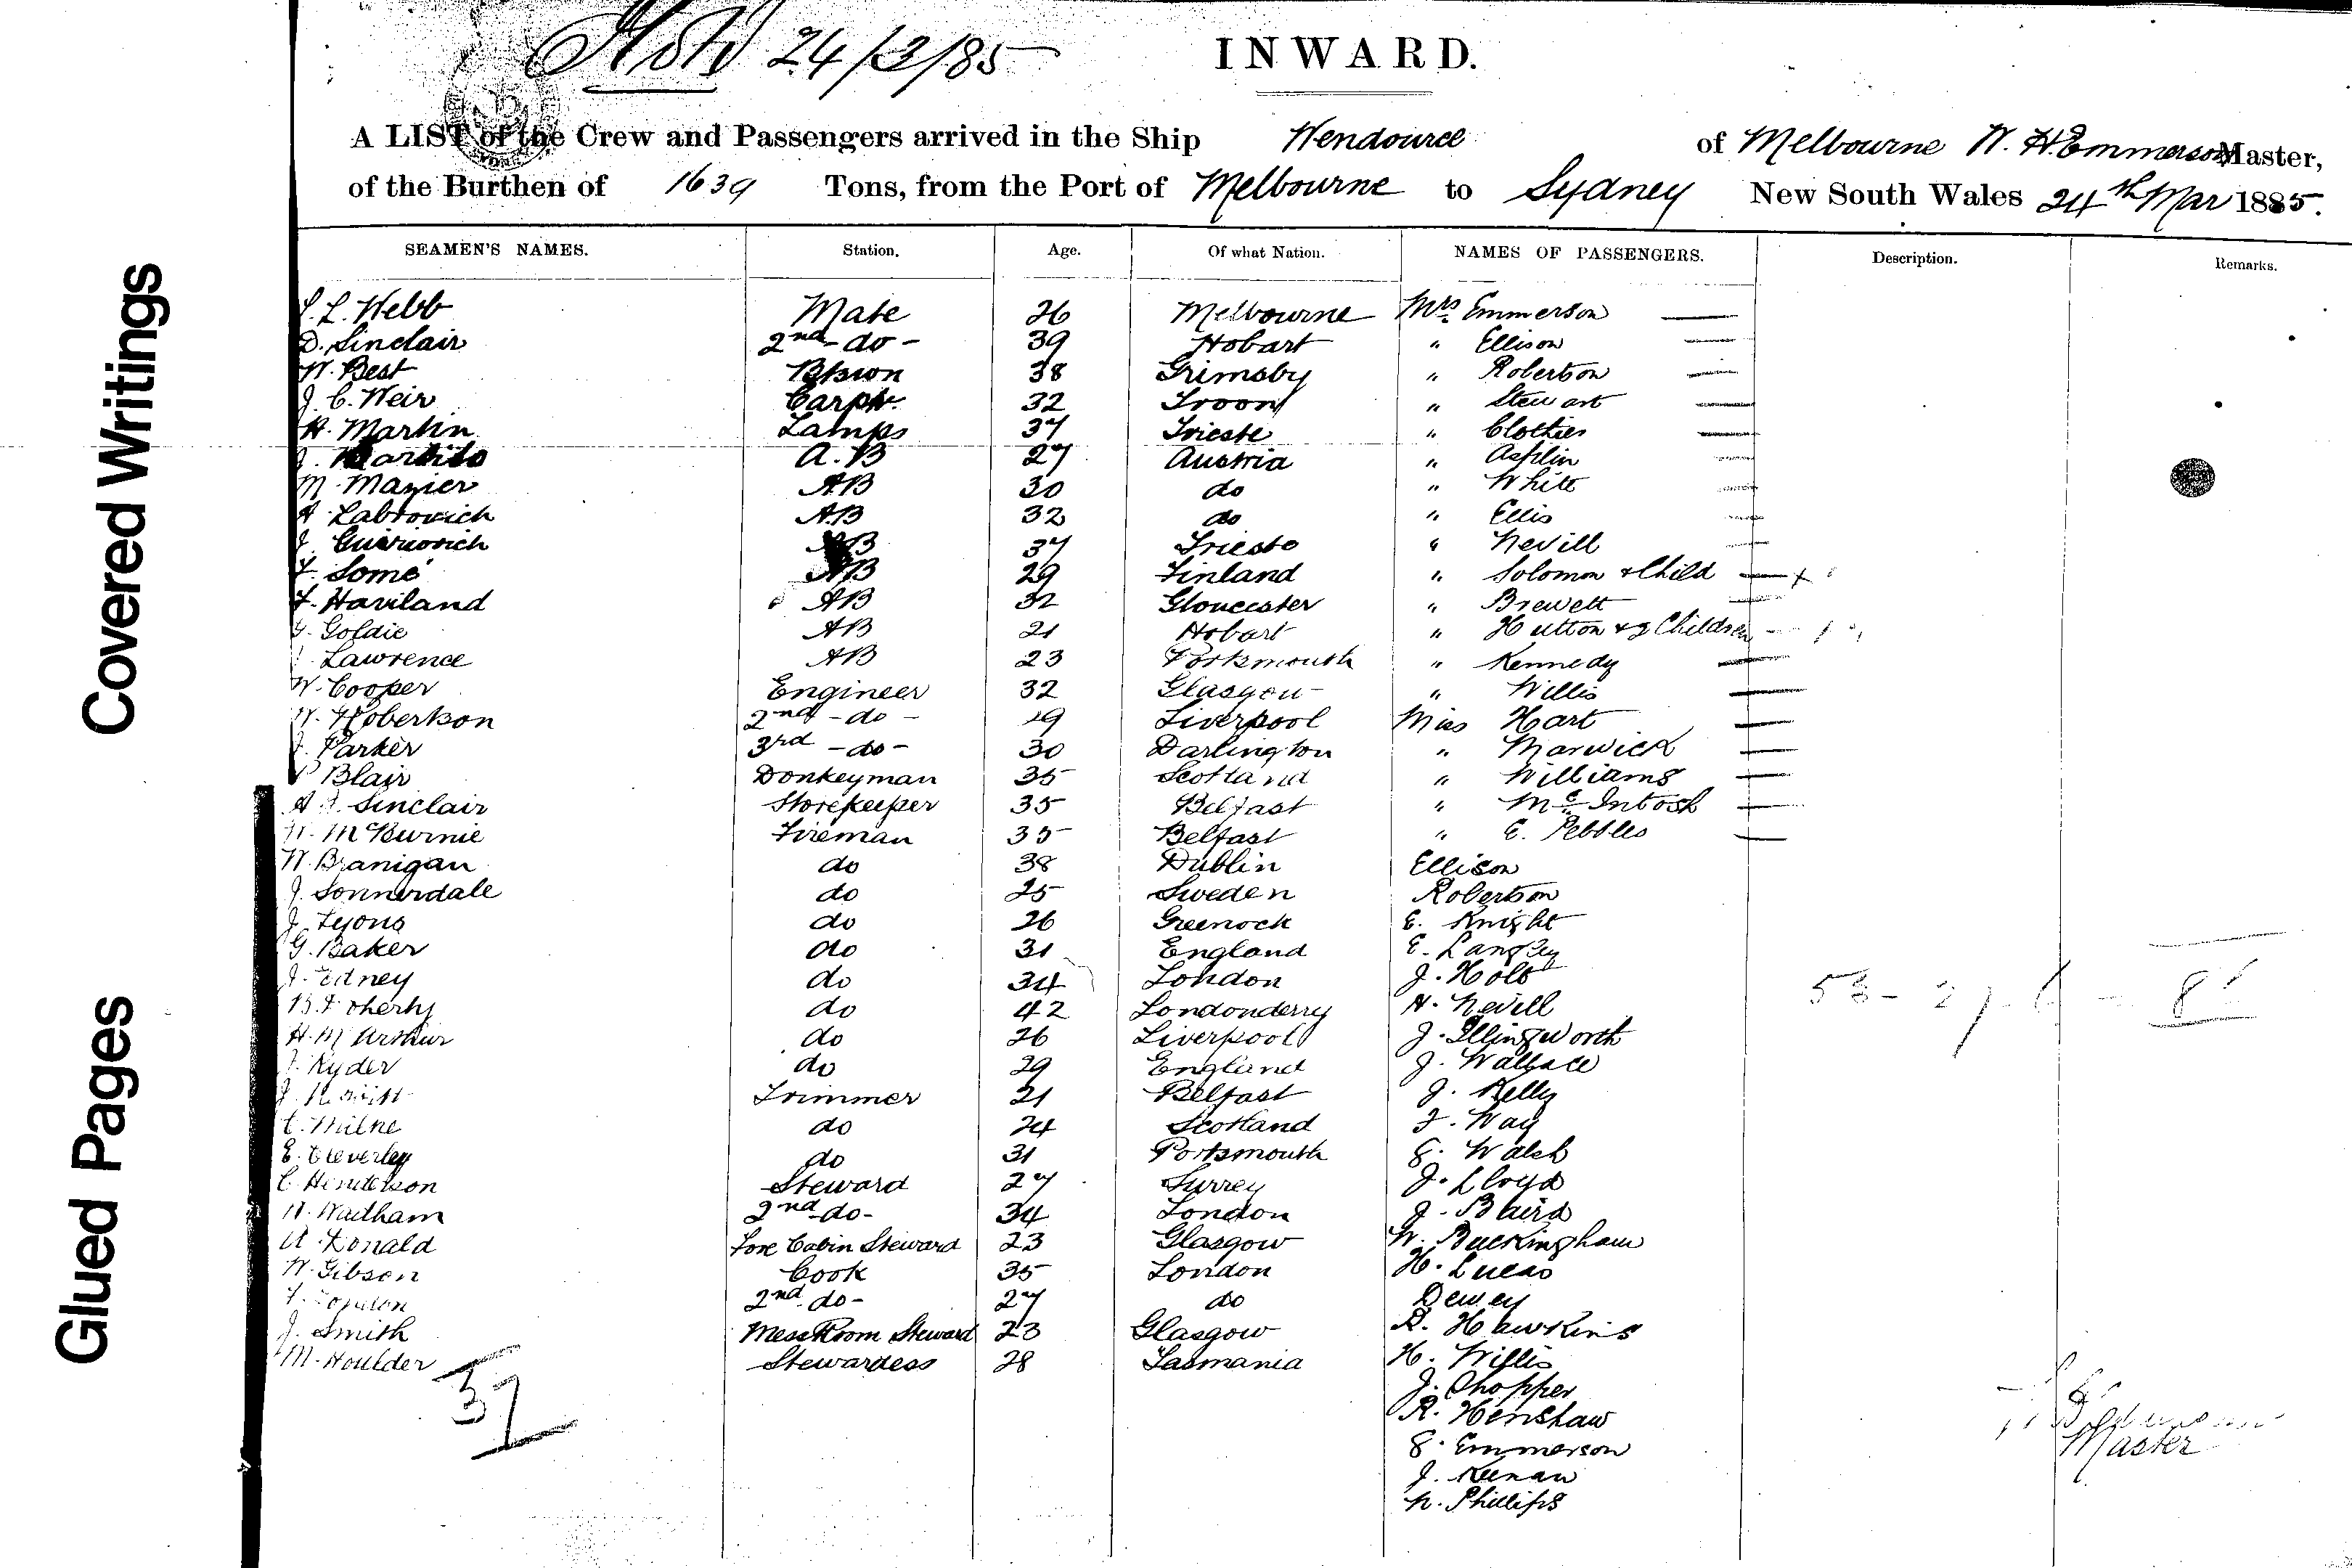 24/3/85
INWARD.
A LIST of the Crew and Passengers arrived in the Ship Wendouree of Melbourne W. H. Emmerson Master,
of the Burthen of 1639 Tons, from the Port of Melbourne to Sydney New South Wales 24th Mar 1885.
SEAMEN'S NAMES. Station. Age. Of what Nation. NAMES OF PASSENGERS. Description. Remarks.
L. Webb Mate 26 Melbourne Mrs Emmerson
D. Sinclair 2nd - do - 39 Hobart " Ellison
W. Best Bswn 38 Grimsby " Robertson
J. C. Weir Carptr. 32 Troon " Stewart
H. Martin Lamps 37 Trieste " Clothier
J. A.B 27 Austria " Asplin
M. Mazier AB 30 do " White
A. Labrovich AB 32 do " Ellis
J. AB 37 Trieste " Nevill
Somé AB 29 Finland " Solomon & Child
F. Haviland AB 32 Gloucester " Brewett
G. Goldie AB 21 Hobart " Hutton & 2 Children
Lawrence AB 23 Portsmouth " Kennedy
W. Cooper Engineer 32 Glasgow " Willis
W. Roberton 2nd - do - 29 Liverpool Miss Hart
J. Parker 3rd - do - 30 Darlington " Marwick
Blair Donkeyman 35 Scotland " Williams
A. Sinclair Storekeeper 35 Belfast " McIntosh
W. McBurnie Fireman 35 Belfast " E. Pebbles
W. Branigan do 38 Dublin Ellison
J. Sonnerdale do 25 Sweden Robertson
J. Lyons do 26 Greenock E. Knight
G. Baker do 31 England E. Langley
J. Edney do 34 London J. Holt
B. Doherty do 42 Londonderry H. Nevill
H. McArthur do 26 Liverpool J. Illingworth
J. Ryder do 29 England J. Wallace
J. Trimmer 21 Belfast J. Kelly
C. Milne do 24 Scotland F. Way
E. Cleverley do 31 Portsmouth E. Walsh
C. Henderson Steward 27 Surrey J. Lloyd
W. Wadham 2nd - do - 34 London J. Baird
A. Donald Fore Cabin Steward 23 Glasgow W. Buckingham
W. Gibson Cook 35 London H. Lucas
2nd - do - 27 do Dewey
J. Smith Mess Room Steward 23 Glasgow R. Hawkins
M. Houlder Stewardess 28 Tasmania H. Willis
37
J. Chopper
R. Henshaw
E. Emmerson
J. Keenan
N. Phillips
Master
Covered Writings
Glued Pages